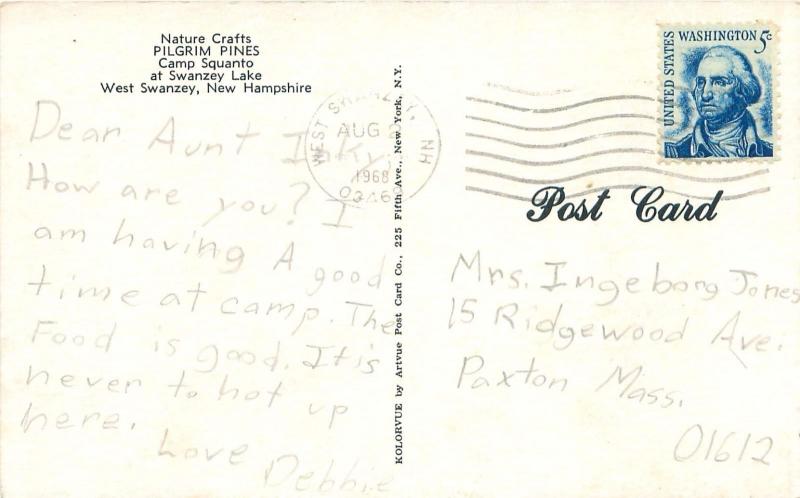 Nature Crafts
PILGRIM PINES
Camp Squanto
at Swanzey Lake
West Swanzey, New Hampshire
Dear Aunt Inky,
How are you? I
am having A good
time at camp. The
Food is good. It is
never to hot up
here.
Love
Debbie
KOLORVUE by Artvue Post Card Co., 225 Fifth Ave., New York, N.Y.
WEST SWANZEY, NH
AUG
1968
UNITED STATES WASHINGTON 5c
Post Card
Mrs. Ingeborg Jones
15 Ridgewood Ave.
Paxton Mass.
01612